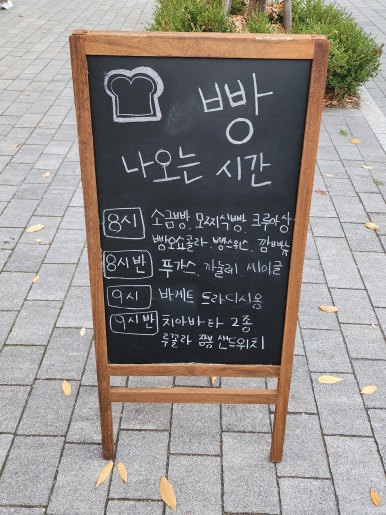 빵
나오는 시간
8시 소금빵, 모찌식빵, 크루아상
빵오쇼콜라, 빵스위스, 깜빠뉴
8시반 푸가스, 까눌레, 세이글
9시 바게트 트라디시옹
9시반 치아바타 2종
루꼴라 잠봉 샌드위치